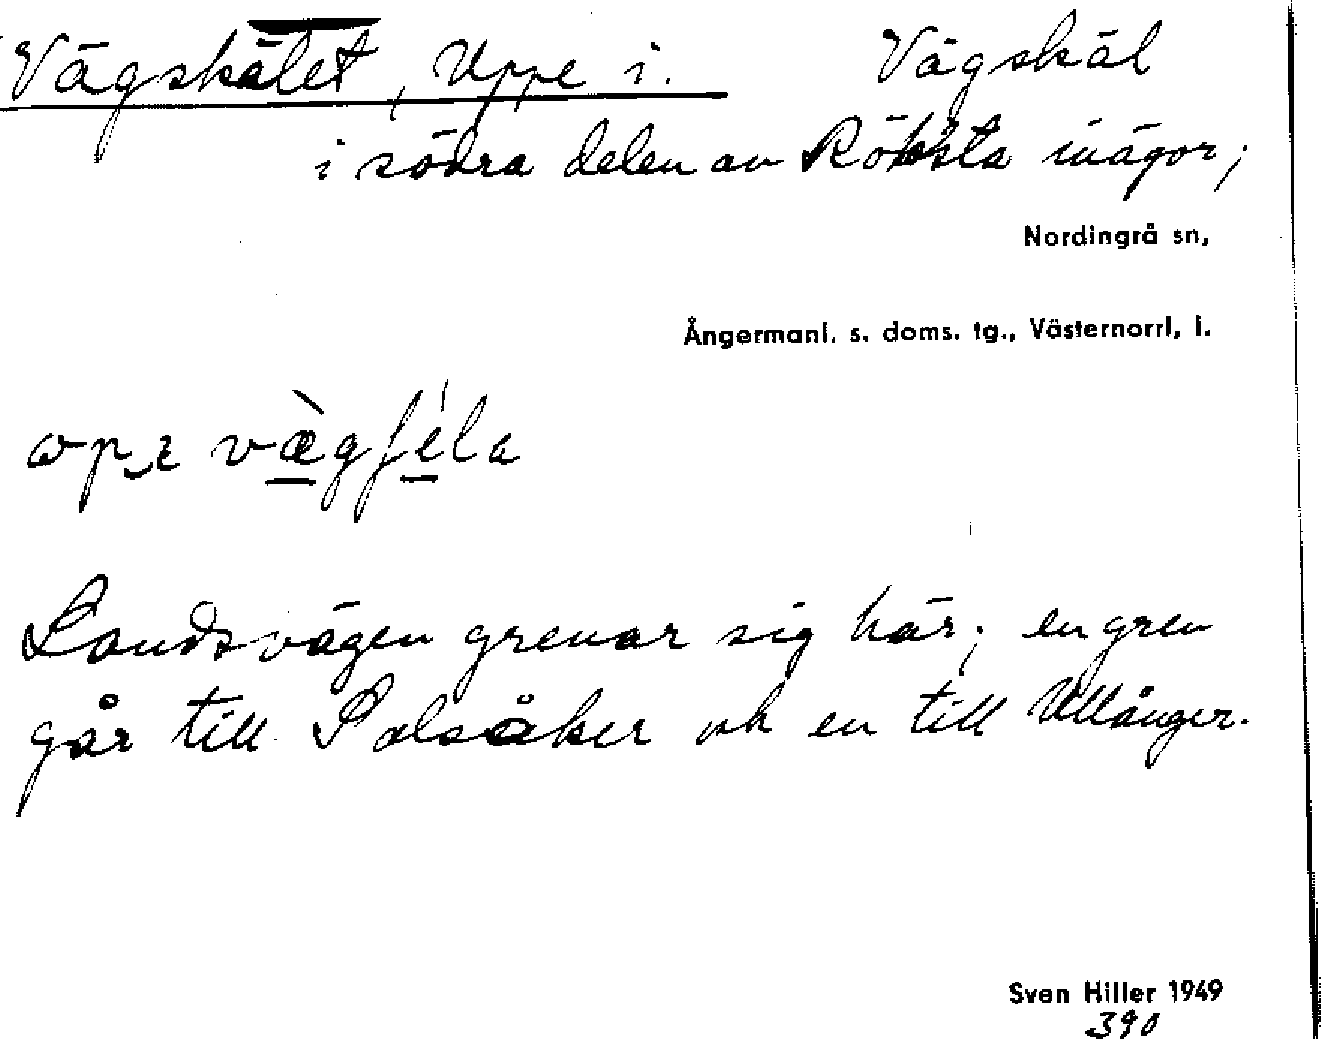 Vägskälet, Uppe i. Vägskäl
i södra delen av Röksta inägor;
Nordingrå sn,
Ångermanl. s. doms. tg., Västernorrl, l.
Landsvägen grenar sig här; en gren
går till Salsåker och en till Ullånger.
Sven Hiller 1949
390